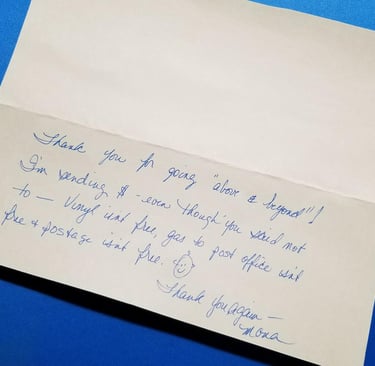 Thank you for going "above & beyond"!
I'm sending $ - even though you said not
to — Vinyl isnt free, gas to post office isn't
free & postage isn't free.
Thank you again —
Mona